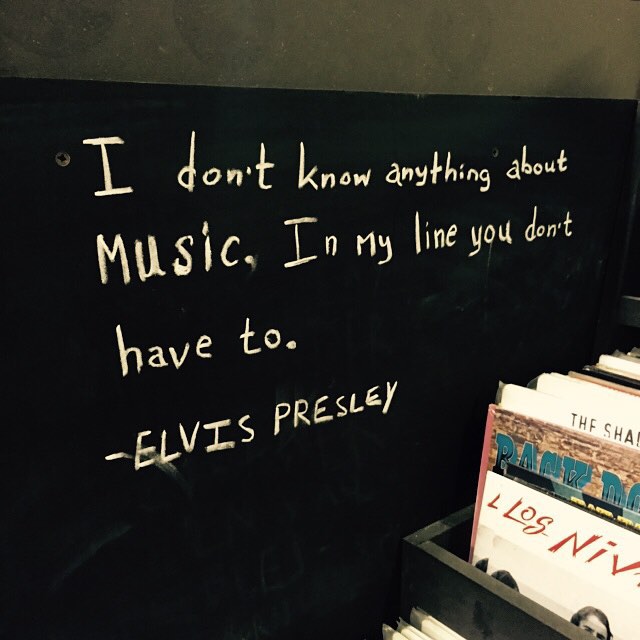 I don't know anything about
MUSIC. In my line you don't
have to.
-ELVIS PRESLEY
THE SHA
BACK DO
L LOG NIV